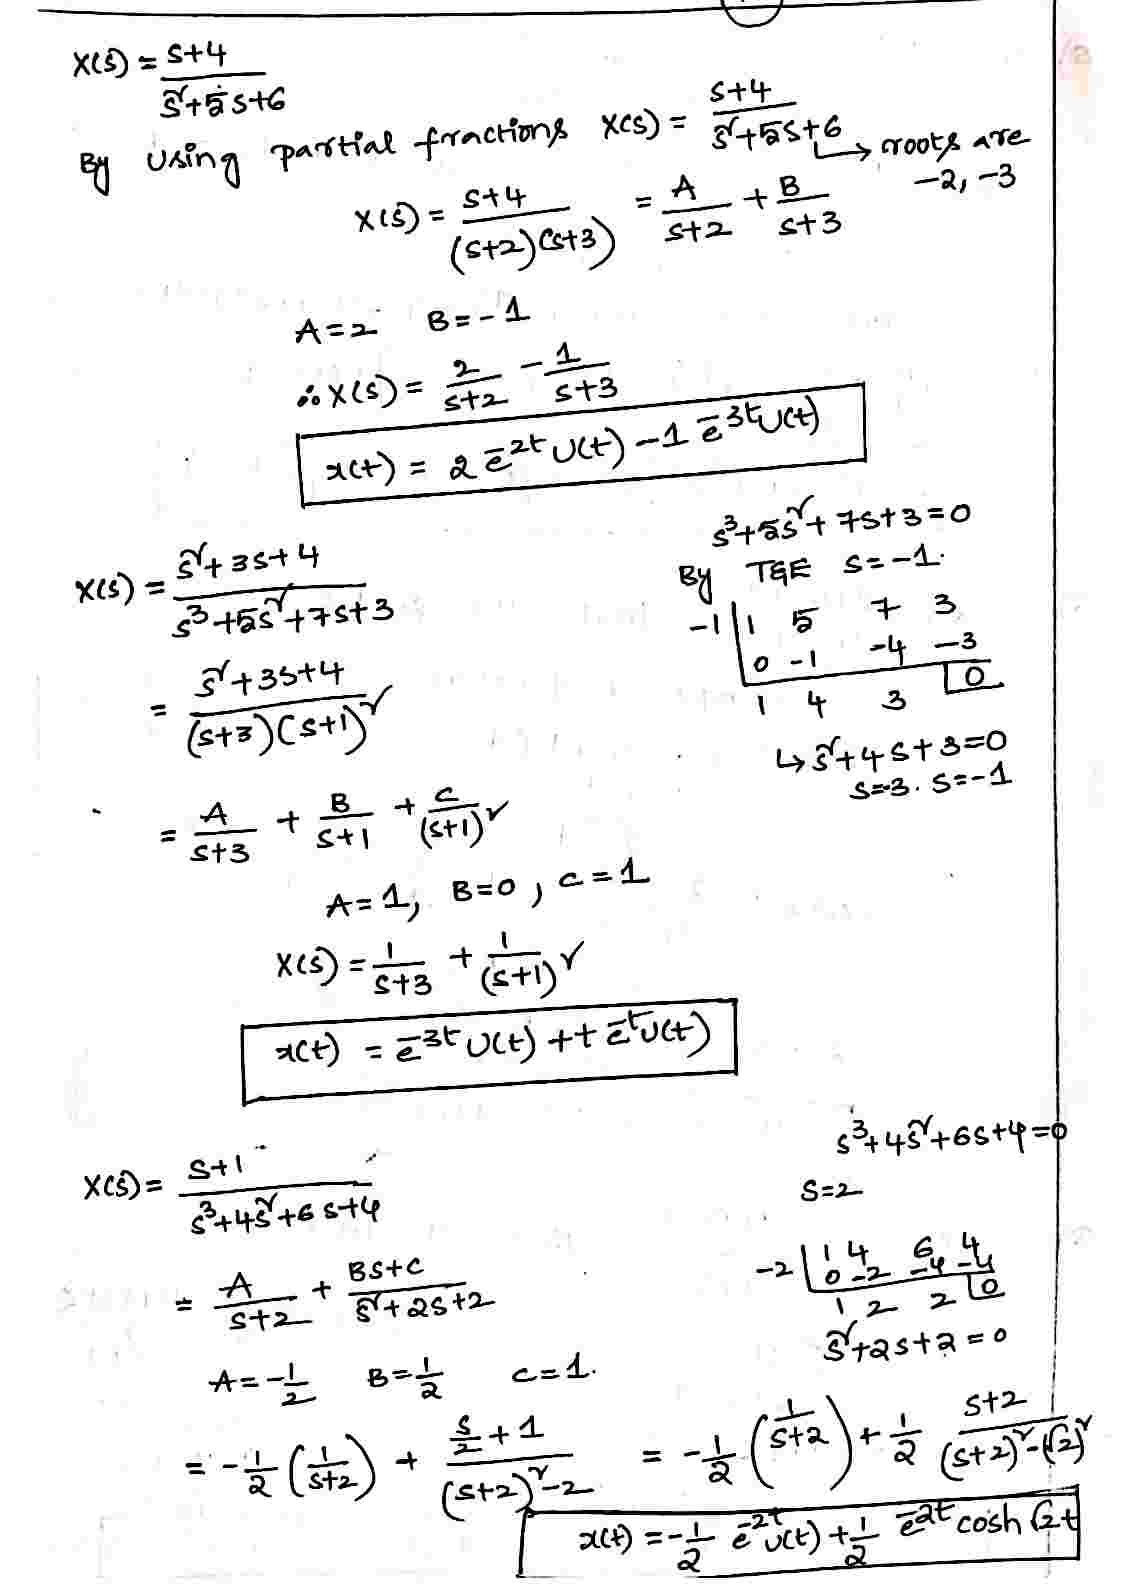 X(s) = (s+4)/(s²+5s+6)
By using partial fractions X(s) = (s+4)/(s²+5s+6) → roots are -2, -3
X(s) = (s+4)/((s+2)(s+3)) = A/(s+2) + B/(s+3)
A=2 B=-1
∴ X(s) = 2/(s+2) - 1/(s+3)
x(t) = 2 e^-2t U(t) - 1 e^-3t U(t)
s³+5s²+7s+3=0
By T&E s=-1.
-1 | 1 5 7 3
0 -1 -4 -3
1 4 3 0
↳ s²+4s+3=0
s=-3. s=-1
X(s) = (s²+3s+4)/(s³+5s²+7s+3)
= (s²+3s+4)/((s+3)(s+1)²)
= A/(s+3) + B/(s+1) + C/(s+1)²
A=1, B=0, C=1
X(s) = 1/(s+3) + 1/(s+1)²
x(t) = e^-3t U(t) + t e^-t U(t)
s³+4s²+6s+4=0
s=2
-2 | 1 4 6 4
0 -2 -4 -4
1 2 2 0
s²+2s+2=0
X(s) = (s+1)/(s³+4s²+6s+4)
= A/(s+2) + (Bs+C)/(s²+2s+2)
A=-1/2 B=1/2 C=1.
= -1/2 (1/(s+2)) + (s/2+1)/((s+2)²-2) = -1/2 (1/(s+2)) + 1/2 (s+2)/((s+2)²-(√2)²)
x(t) = -1/2 e^-2t U(t) + 1/2 e^-2t cosh √2 t